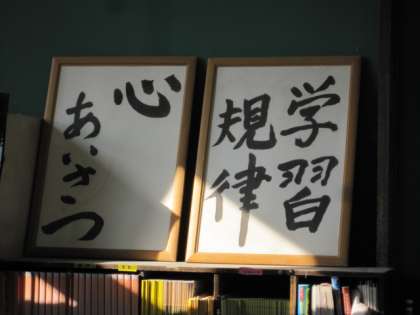 学習
規律
心
あいさつ